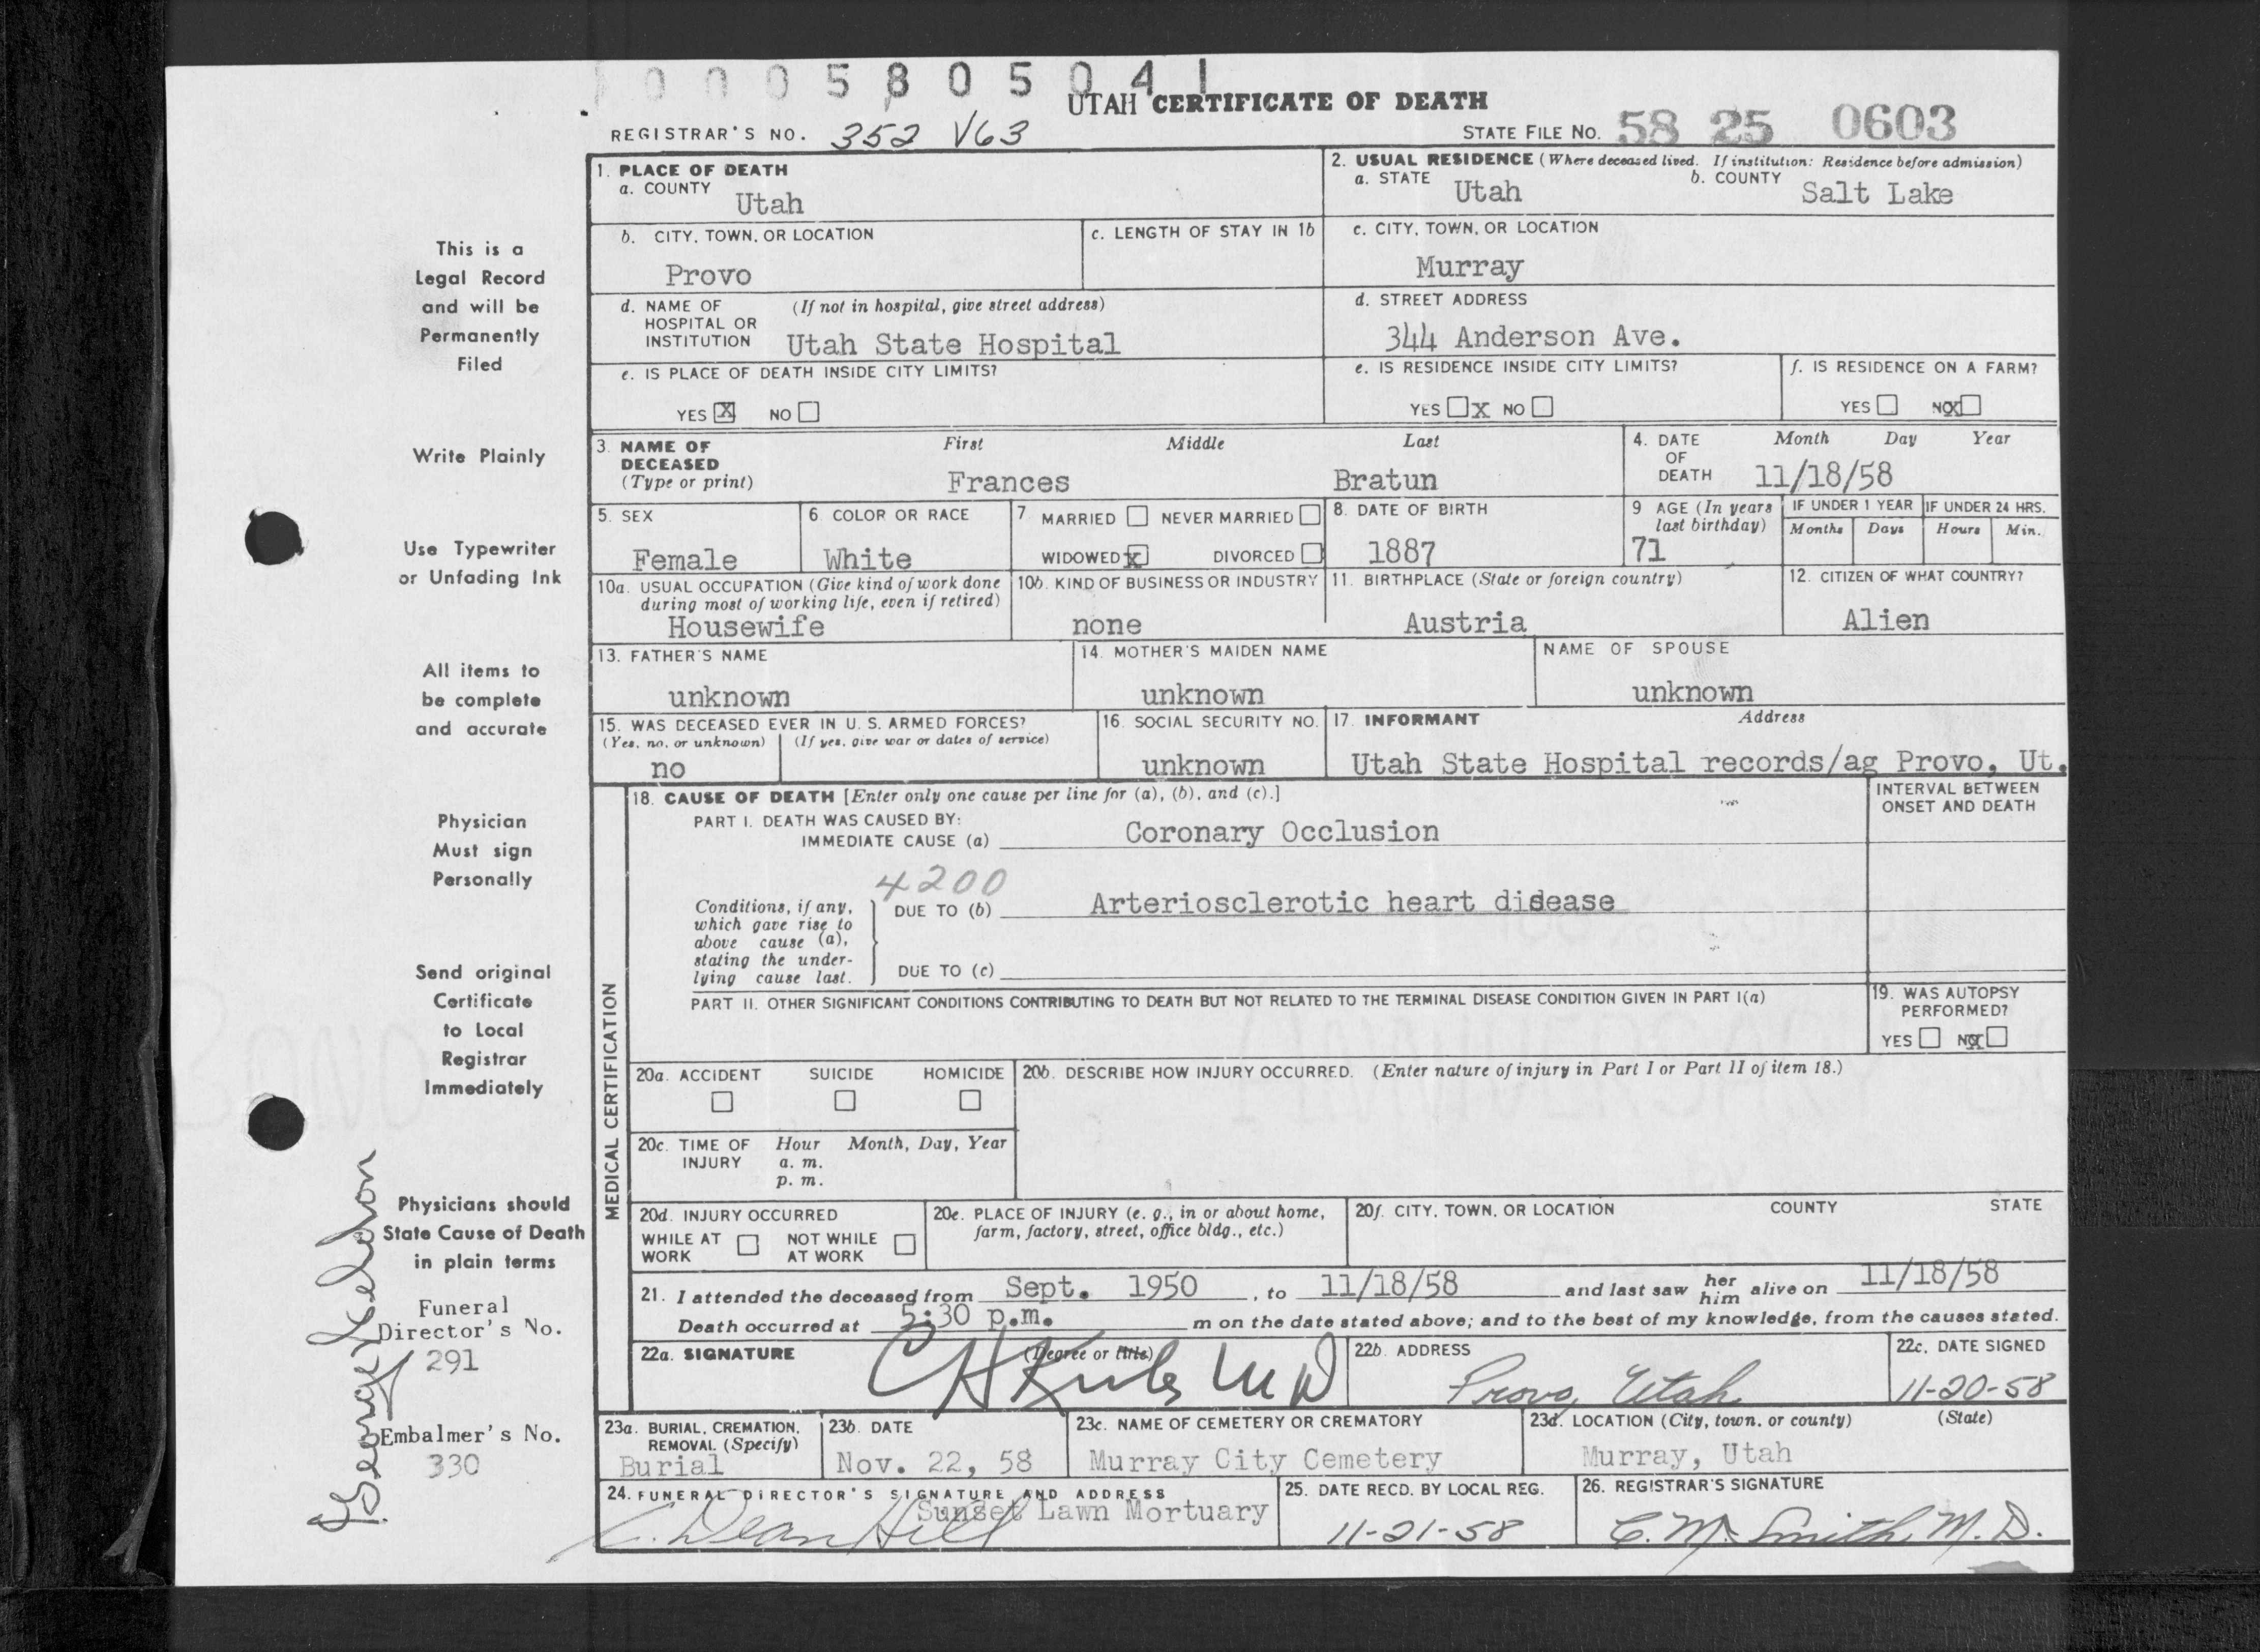 0 0 0 5 8 0 5 0 4 1
UTAH CERTIFICATE OF DEATH
REGISTRAR'S NO. 352 V63
STATE FILE NO. 58 25 0603
1. PLACE OF DEATH
a. COUNTY
Utah
2. USUAL RESIDENCE (Where deceased lived. If institution: Residence before admission)
a. STATE Utah b. COUNTY Salt Lake
b. CITY, TOWN, OR LOCATION
Provo
c. LENGTH OF STAY IN 1b
c. CITY, TOWN, OR LOCATION
Murray
d. NAME OF HOSPITAL OR INSTITUTION (If not in hospital, give street address)
Utah State Hospital
d. STREET ADDRESS
344 Anderson Ave.
e. IS PLACE OF DEATH INSIDE CITY LIMITS?
YES X NO
e. IS RESIDENCE INSIDE CITY LIMITS?
YES X NO
f. IS RESIDENCE ON A FARM?
YES NO X
3. NAME OF DECEASED (Type or print)
First Middle Last
Frances Bratun
4. DATE OF DEATH
Month Day Year
11/18/58
5. SEX
Female
6. COLOR OR RACE
White
7 MARRIED NEVER MARRIED
WIDOWED X DIVORCED
8. DATE OF BIRTH
1887
9 AGE (In years last birthday)
71
IF UNDER 1 YEAR
Months Days
IF UNDER 24 HRS.
Hours Min.
10a. USUAL OCCUPATION (Give kind of work done during most of working life, even if retired)
Housewife
10b. KIND OF BUSINESS OR INDUSTRY
none
11. BIRTHPLACE (State or foreign country)
Austria
12. CITIZEN OF WHAT COUNTRY?
Alien
13. FATHER'S NAME
unknown
14. MOTHER'S MAIDEN NAME
unknown
NAME OF SPOUSE
unknown
15. WAS DECEASED EVER IN U. S. ARMED FORCES?
(Yes, no, or unknown) (If yes, give war or dates of service)
no
16. SOCIAL SECURITY NO.
unknown
17. INFORMANT Address
Utah State Hospital records/ag Provo, Ut.
MEDICAL CERTIFICATION
18. CAUSE OF DEATH [Enter only one cause per line for (a), (b), and (c).]
INTERVAL BETWEEN ONSET AND DEATH
PART I. DEATH WAS CAUSED BY:
IMMEDIATE CAUSE (a) Coronary Occlusion
4200
Conditions, if any, which gave rise to above cause (a), stating the underlying cause last.
DUE TO (b) Arteriosclerotic heart disease
DUE TO (c)
PART II. OTHER SIGNIFICANT CONDITIONS CONTRIBUTING TO DEATH BUT NOT RELATED TO THE TERMINAL DISEASE CONDITION GIVEN IN PART I(a)
19. WAS AUTOPSY PERFORMED?
YES NO X
20a. ACCIDENT SUICIDE HOMICIDE
20b. DESCRIBE HOW INJURY OCCURRED. (Enter nature of injury in Part I or Part II of item 18.)
20c. TIME OF INJURY Hour Month, Day, Year
a. m.
p. m.
20d. INJURY OCCURRED
WHILE AT WORK NOT WHILE AT WORK
20e. PLACE OF INJURY (e. g., in or about home, farm, factory, street, office bldg., etc.)
20f. CITY, TOWN, OR LOCATION COUNTY STATE
21. I attended the deceased from Sept. 1950, to 11/18/58 and last saw her him alive on 11/18/58
Death occurred at 5:30 p.m. m on the date stated above; and to the best of my knowledge, from the causes stated.
22a. SIGNATURE (Degree or title)
M D
22b. ADDRESS
Provo, Utah
22c. DATE SIGNED
11-20-58
23a. BURIAL, CREMATION, REMOVAL (Specify)
Burial
23b. DATE
Nov. 22, 58
23c. NAME OF CEMETERY OR CREMATORY
Murray City Cemetery
23d. LOCATION (City, town, or county) (State)
Murray, Utah
24. FUNERAL DIRECTOR'S SIGNATURE AND ADDRESS
Sunset Lawn Mortuary
Dean Hill
25. DATE RECD. BY LOCAL REG.
11-21-58
26. REGISTRAR'S SIGNATURE
C. M. Smith M. D.
This is a
Legal Record
and will be
Permanently
Filed
Write Plainly
Use Typewriter
or Unfading Ink
All items to
be complete
and accurate
Physician
Must sign
Personally
Send original
Certificate
to Local
Registrar
Immediately
Physicians should
State Cause of Death
in plain terms
Funeral
Director's No.
291
Embalmer's No.
330
George